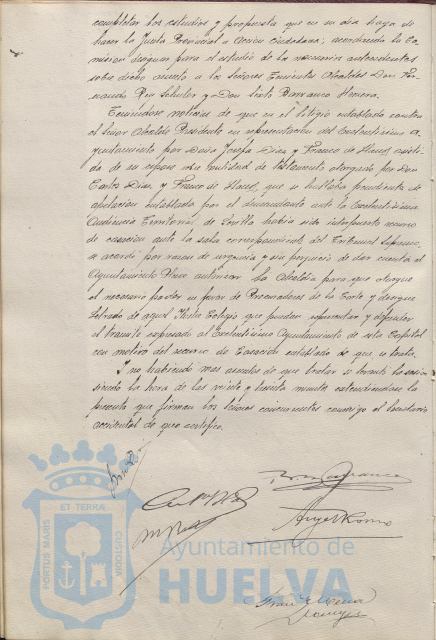 completar los estudios y propuesta que en su dia haya de
hacer la Junta Provincial de Accion Ciudadana; acordando la Co-
mision designar para el estudio de los necesarios antecedentes
sobre dicho asunto a los Señores Tenientes Alcaldes Don Fer-
nando Rey Schuler y Don Sixto Barranco Herrera.
Teniendose noticias de que en el litigio entablado contra
el Señor Alcalde Presidente en representacion del Excelentisimo A-
yuntamiento por Doña Josefa Diaz y Franco de Llanos asisti-
da de su esposo sobre nulidad de testamento otorgado por Don
Carlos Diaz y Franco de Llanos, que se hallaba pendiente de
apelacion entablada por el demandante ante la Excelentisima
Audiencia Territorial de Sevilla habia sido interpuesto recurso
de casacion ante la sala correspondiente del Tribunal Supremo,
se acordó por razon de urgencia y sin perjuicio de dar cuenta al
Ayuntamiento Pleno autorizar a la Alcaldia para que otorgue
el necesario poder en favor de Procuradores de la Corte y designe
letrado de aquel Ilustre Colegio que puedan representar y defender
el tramite expresado al Excelentisimo Ayuntamiento de esta Capital
con motivo del recurso de Casación entablado de que se trata.
Y no habiendo mas asuntos de que tratar se levantó la sesión
siendo la hora de las veinte y treinta minutos extendiendose la
presente que firman los Señores concurrentes conmigo el Secretario
accidental de que certifico.
Angel Romo
PORTUS MARIS
ET TERRÆ
CUSTODIA
Ayuntamiento de
HUELVA